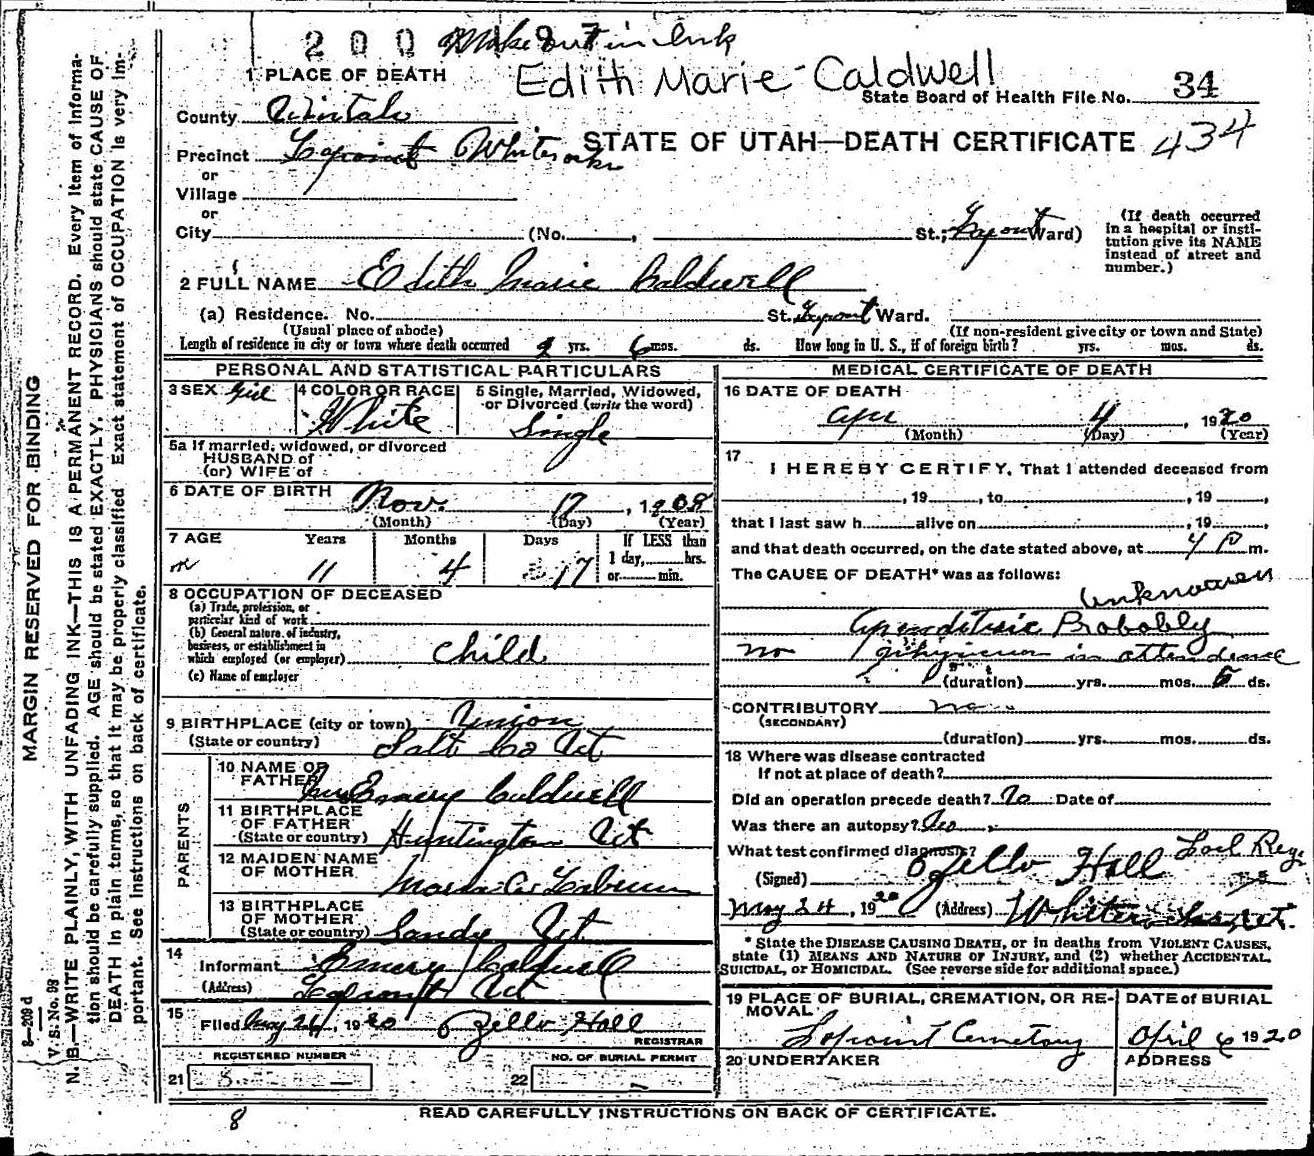 200 1987 Make out in Ink
Edith Marie Caldwell
1 PLACE OF DEATH
State Board of Health File No. 34
County Uintah
STATE OF UTAH—DEATH CERTIFICATE 434
Precinct Lapoint Whiterocks
or
Village
or
City (No. , St.; Lapoint Ward)
(If death occurred in a hospital or institution give its NAME instead of street and number.)
2 FULL NAME Edith Marie Caldwell
(a) Residence. No. St. Lapoint Ward.
(Usual place of abode) (If non-resident give city or town and State)
Length of residence in city or town where death occurred 9 yrs. 6 mos. ds. How long in U. S., if of foreign birth? yrs. mos. ds.
PERSONAL AND STATISTICAL PARTICULARS
3 SEX Girl
4 COLOR OR RACE White
5 Single, Married, Widowed, or Divorced (write the word)
Single
5a If married, widowed, or divorced
HUSBAND of
(or) WIFE of
6 DATE OF BIRTH Nov. 17, 1908
(Month) (Day) (Year)
7 AGE Years Months Days If LESS than
11 4 17 1 day, hrs.
or min.
8 OCCUPATION OF DECEASED
(a) Trade, profession, or
particular kind of work
(b) General nature of industry,
business, or establishment in
which employed (or employer) child
(c) Name of employer
9 BIRTHPLACE (city or town) Union
(State or country) Salt Co Ut
PARENTS
10 NAME OF
FATHER Emery Caldwell
11 BIRTHPLACE
OF FATHER
(State or country) Huntington Ut
12 MAIDEN NAME
OF MOTHER
13 BIRTHPLACE
OF MOTHER
(State or country) Sandy Ut
14
Informant Emery Caldwell
(Address) Lapoint Ut
15
Filed May 24, 1920 Zello Hall
REGISTRAR
REGISTERED NUMBER NO. OF BURIAL PERMIT
21 8 22
MEDICAL CERTIFICATE OF DEATH
16 DATE OF DEATH
Apr 4, 1920
(Month) (Day) (Year)
17
I HEREBY CERTIFY, That I attended deceased from
, 19 , to , 19 ,
that I last saw h alive on , 19 ,
and that death occurred, on the date stated above, at 4 P m.
The CAUSE OF DEATH* was as follows:
Unknowen
Apenditisic Probobly
no in attendence
(duration) yrs. mos. 5 ds.
CONTRIBUTORY no
(SECONDARY)
(duration) yrs. mos. ds.
18 Where was disease contracted
If not at place of death?
Did an operation precede death? No Date of
Was there an autopsy? No
What test confirmed diagnosis?
(Signed) Zello Hall Loel Reg.
May 24, 1920 (Address) Whiterocks, Ut.
* State the DISEASE CAUSING DEATH, or in deaths from VIOLENT CAUSES,
state (1) MEANS AND NATURE OF INJURY, and (2) whether ACCIDENTAL,
SUICIDAL, or HOMICIDAL. (See reverse side for additional space.)
19 PLACE OF BURIAL, CREMATION, OR REMOVAL
Lapoint Cemetary
DATE of BURIAL
April 6 1920
20 UNDERTAKER ADDRESS
8
READ CAREFULLY INSTRUCTIONS ON BACK OF CERTIFICATE.
MARGIN RESERVED FOR BINDING
N. B.—WRITE PLAINLY, WITH UNFADING INK—THIS IS A PERMANENT RECORD. Every item of Information should be carefully supplied. AGE should be stated EXACTLY. PHYSICIANS should state CAUSE OF DEATH in plain terms, so that it may be properly classified. Exact statement of OCCUPATION is very important. See instructions on back of certificate.
V. S. No. 98
8—209 d